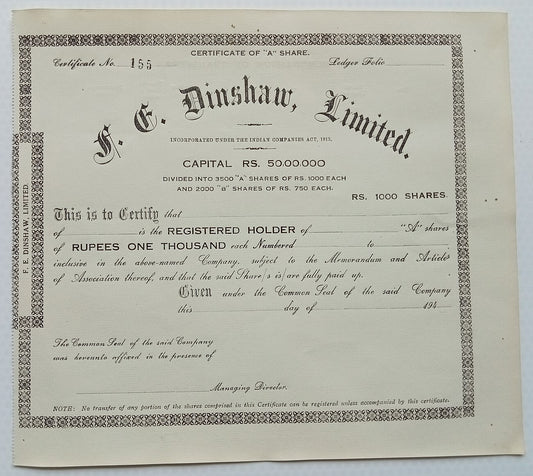 CERTIFICATE OF "A" SHARE.
Certificate No. 155 Ledger Folio
F. E. Dinshaw, Limited.
INCORPORATED UNDER THE INDIAN COMPANIES ACT, 1913.
CAPITAL RS. 50,00,000
DIVIDED INTO 3500 "A" SHARES OF RS. 1000 EACH
AND 2000 "B" SHARES OF RS. 750 EACH.
RS. 1000 SHARES.
This is to Certify that
of is the REGISTERED HOLDER of "A" shares
of RUPEES ONE THOUSAND each Numbered to
inclusive in the above-named Company, subject to the Memorandum and Articles
of Association thereof, and that the said Share/s is/are fully paid up.
Given under the Common Seal of the said Company
this day of 194
The Common Seal of the said Company
was hereunto affixed in the presence of
Managing Director.
NOTE: No transfer of any portion of the shares comprised in this Certificate can be registered unless accompanied by this certificate.
F. E. DINSHAW, LIMITED.